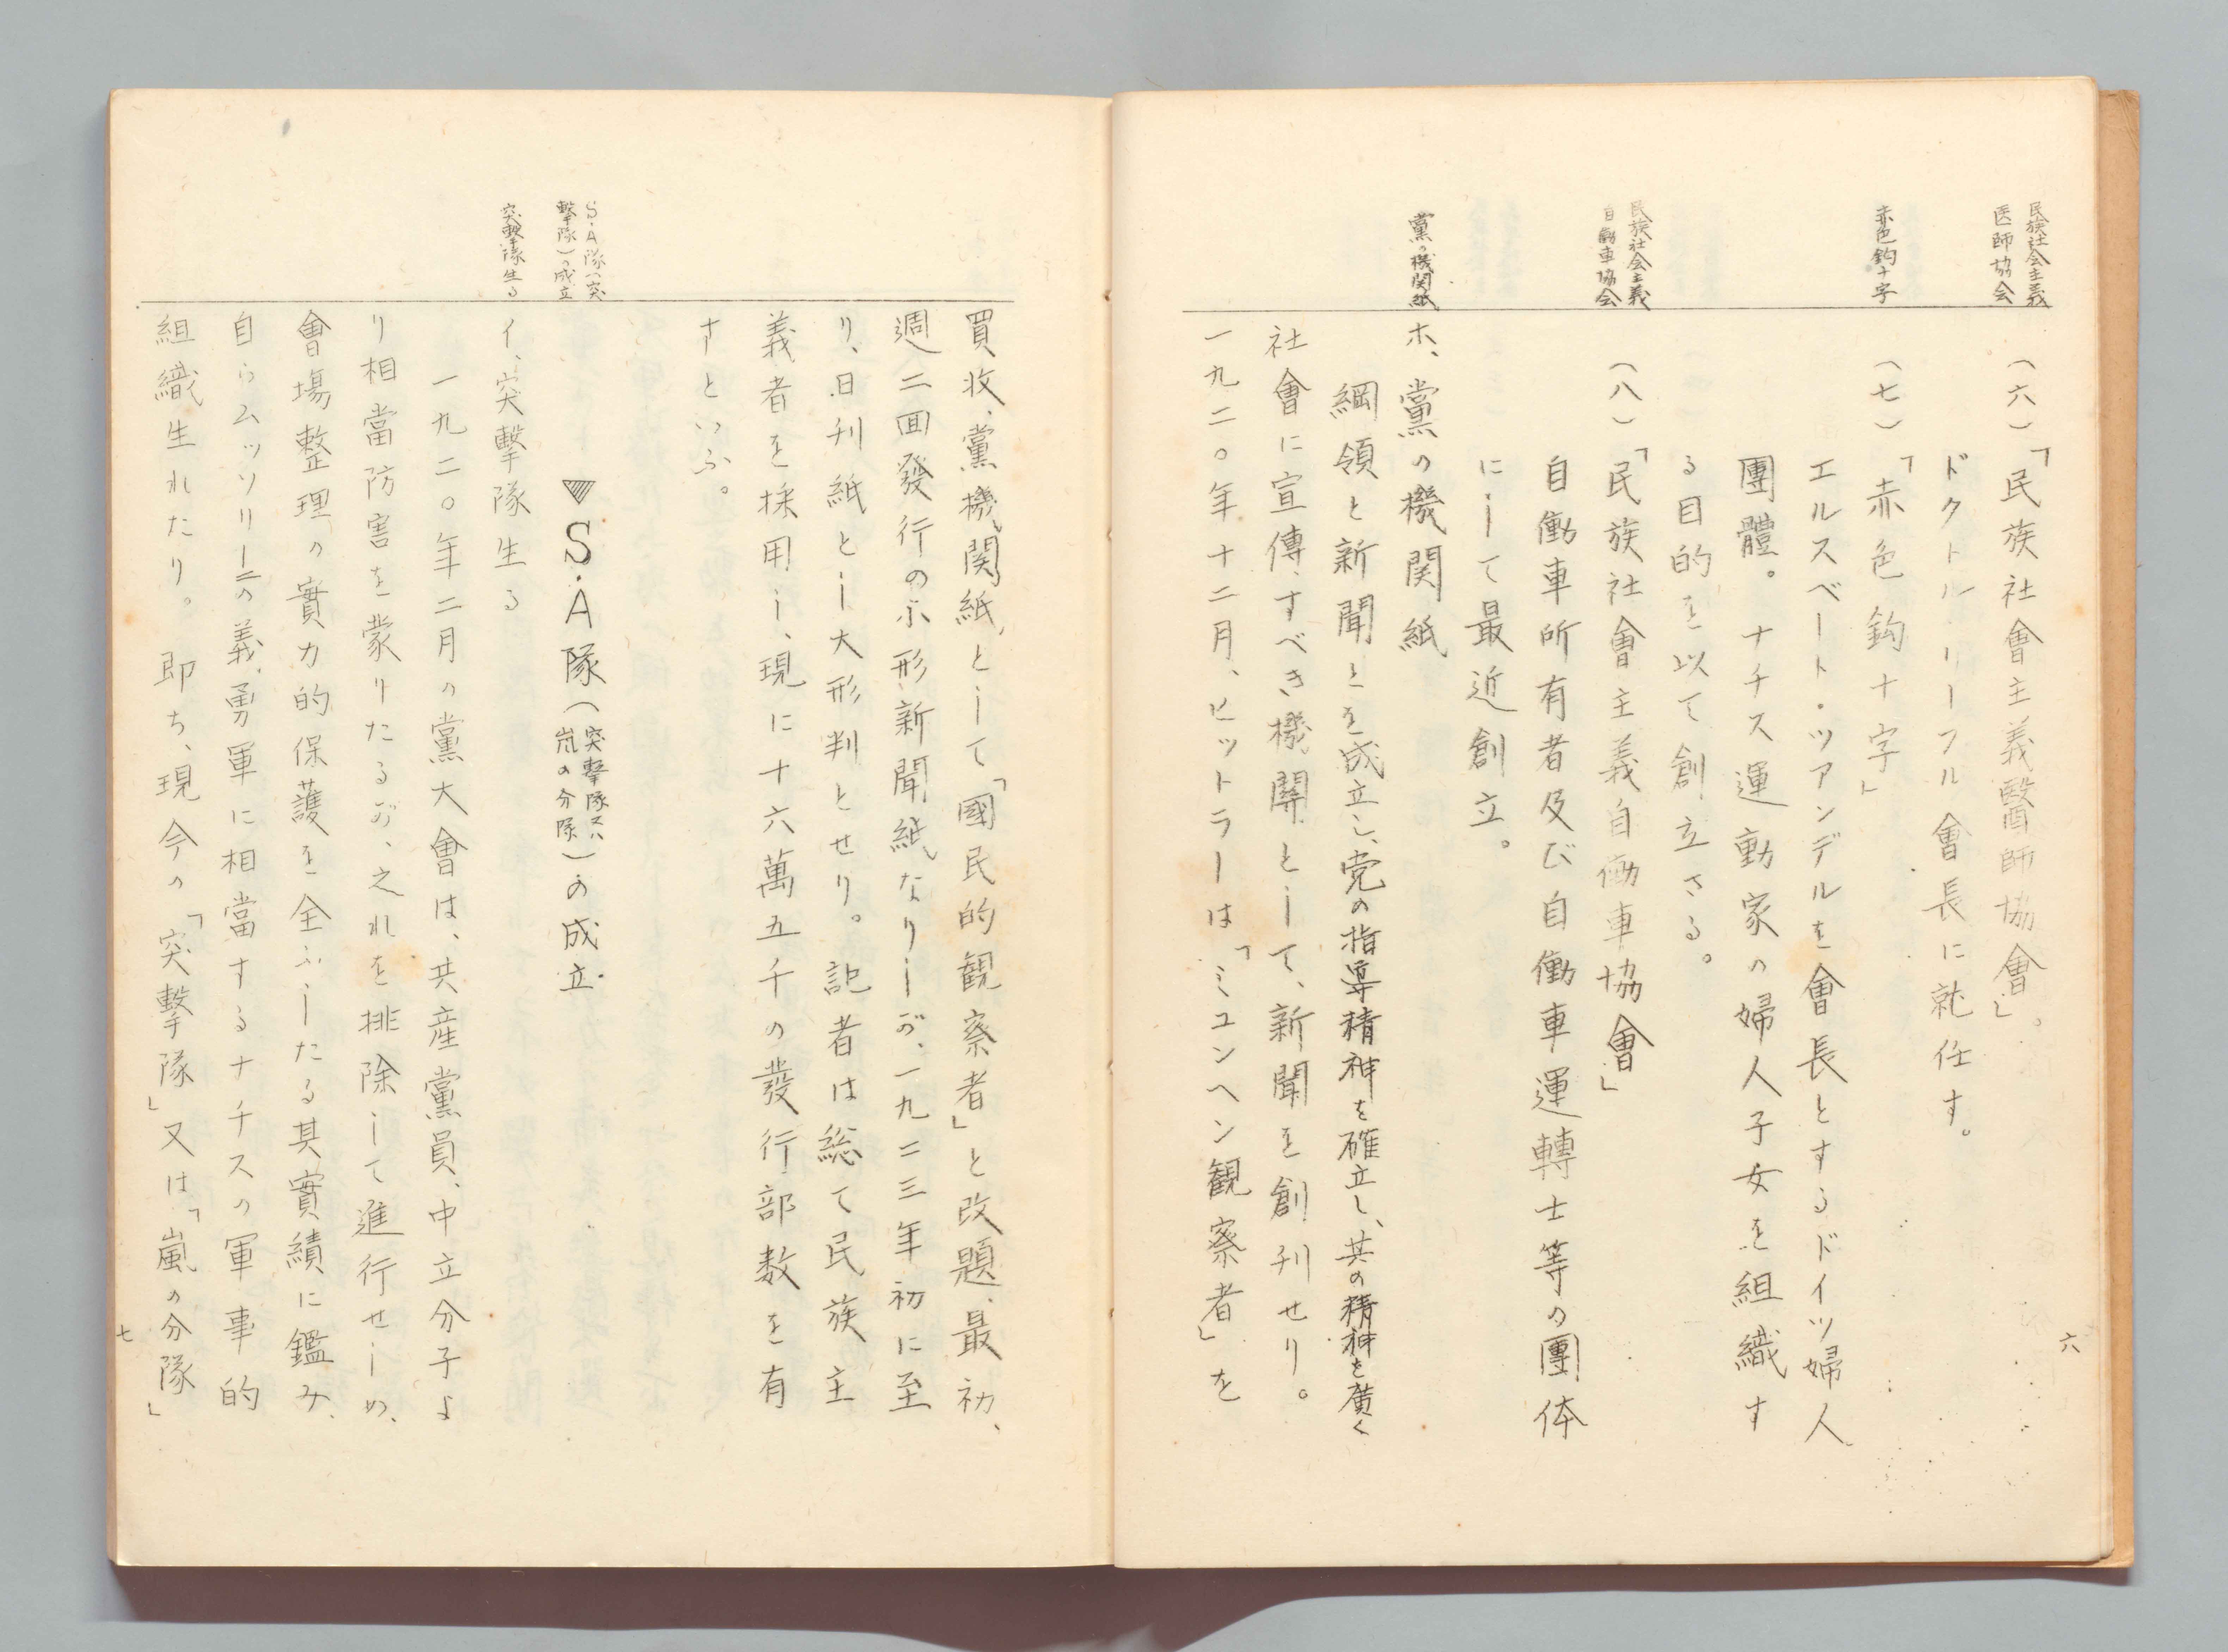 民族社会主義
医師協会
赤色鈎十字
民族社会主義
自働車協会
黨の機関紙
(六)「民族社會主義醫師協會」。
ドクトル・リーフル會長に就任す。
(七)「赤色鈎十字」
エルスベート・ツアンデルを會長とするドイツ婦人
團體。ナチス運動家の婦人子女を組織す
る目的を以て創立さる。
(八)「民族社會主義自働車協會」
自働車所有者及び自働車運轉士等の團体
にして最近創立。
ホ、黨の機関紙
綱領と新聞とを成立し、党の指導精神を確立し、其の精神を廣く
社會に宣傳すべき機関として、新聞を創刊せり。
一九二〇年十二月、ヒットラーは「ミユンヘン観察者」を
六
S・A隊(突
撃隊)の成立
突撃隊生る
買收、黨機関紙、として「國民的観察者」と改題、最初、
週二回發行の小形新聞紙なりしが、一九二三年初に至
り、日刊紙とし大形判とせり。記者は総て民族主
義者を採用し、現に十六萬五千の發行部数を有
すといふ。
▼S・A隊(突撃隊又ハ
嵐の分隊)の成立
イ、突撃隊生る
一九二〇年二月の黨大會は、共産黨員、中立分子よ
り相當防害を蒙りたるが、之れを排除して進行せしめ、
會場整理の實力的保護を全ふしたる其實績に鑑み、
自らムッソリーニの義勇軍に相當するナチスの軍事的
組織生れたり。即ち、現今の「突撃隊」又は「嵐の分隊」
七